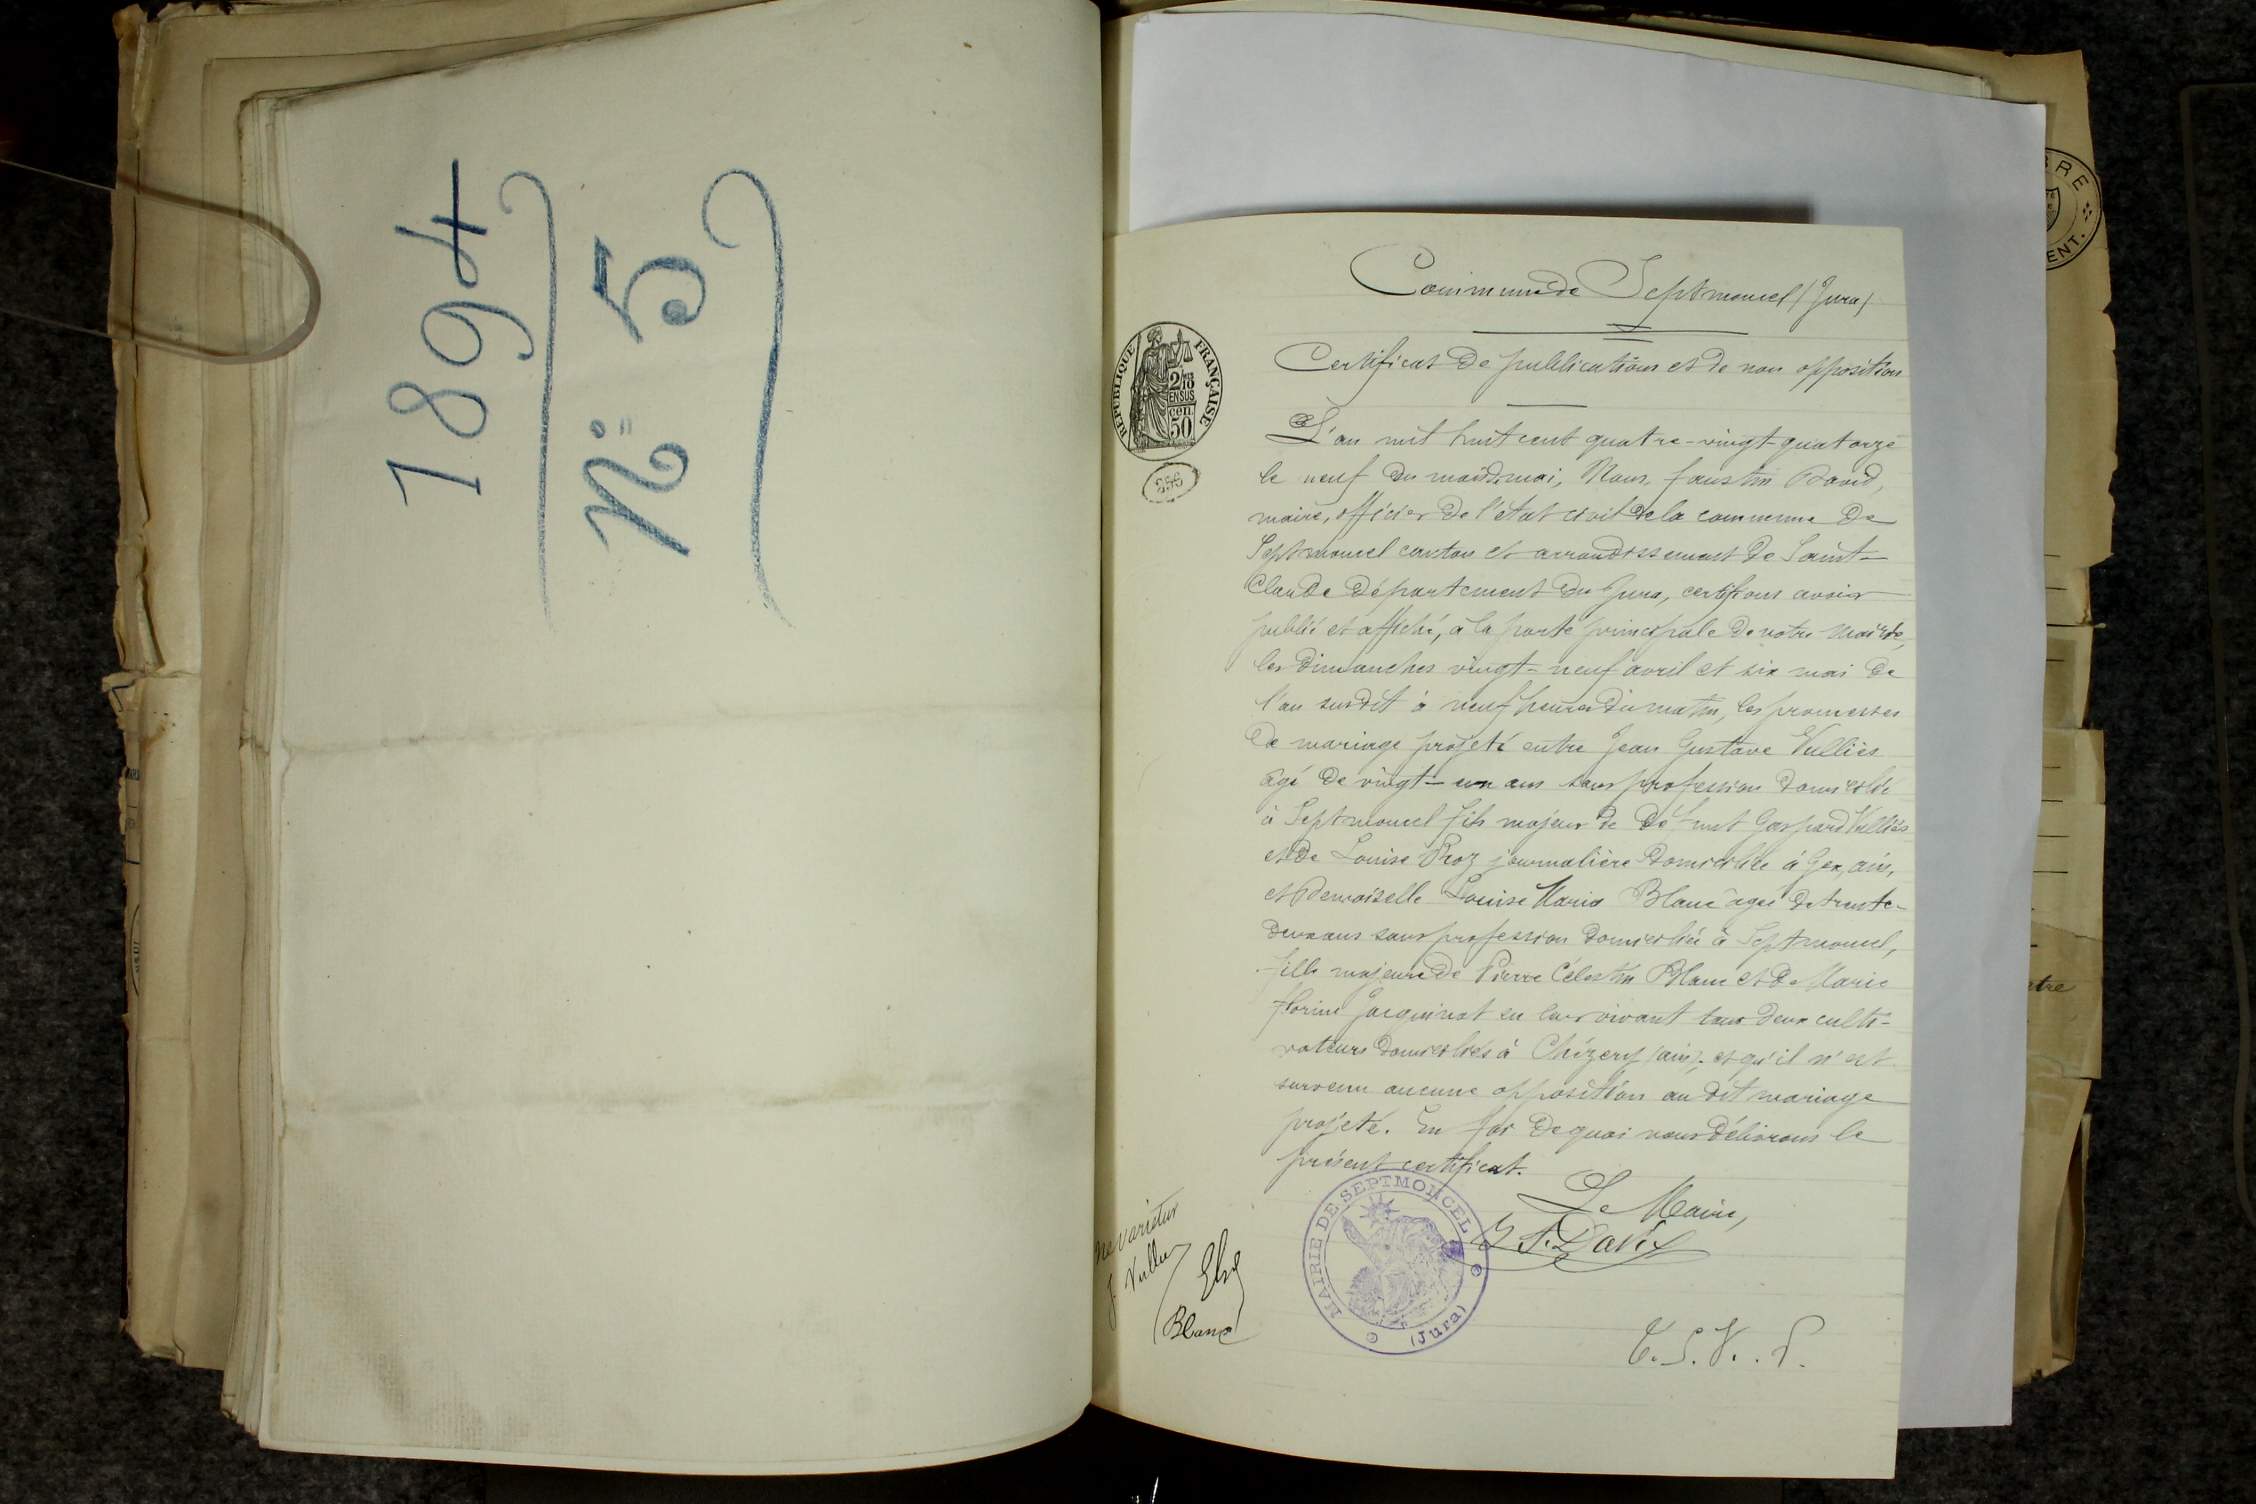 1894
N° 5
Commune de Septmoncel (Jura)
Certificat de publication et de non opposition
RÉPUBLIQUE FRANÇAISE
2/10 EN SUS
50 cen
356
L'an mil huit cent quatre-vingt-quatorze
le neuf du mois de mai, Nous, faustin David,
maire, officier de l'état civil de la commune de
Septmoncel canton et arrondissement de Saint-
Claude Département du Jura, certifions avoir
publié et affiché, à la porte principale de notre mairie,
les dimanches vingt-neuf avril et six mai de
l'an susdit à neuf heures du matin, les promesses
de mariage projeté entre Jean Gustave Vulliès
âgé de vingt-un ans sans profession domicilié
à Septmoncel fils majeur de défunt Gaspard Vulliès
et de Louise Proz journalière domiciliée à Gex, ain,
et Demoiselle Louise Maria Blanc âgée de trente-
deux ans sans profession domiciliée à Septmoncel,
fille majeure de Pierre Célestin Blanc et de Marie
florine Jacquinot en leur vivant tous deux culti-
vateurs domiciliés à Chézery (ain); et qu'il n'est
survenu aucune opposition au dit mariage
projeté. En foi de quoi nous délivrons le
présent certificat.
Le Maire,
F. David
MAIRIE DE SEPTMONCEL
(Jura)
ne varietur
J. Vullier
Blanc
T. S. V. P.